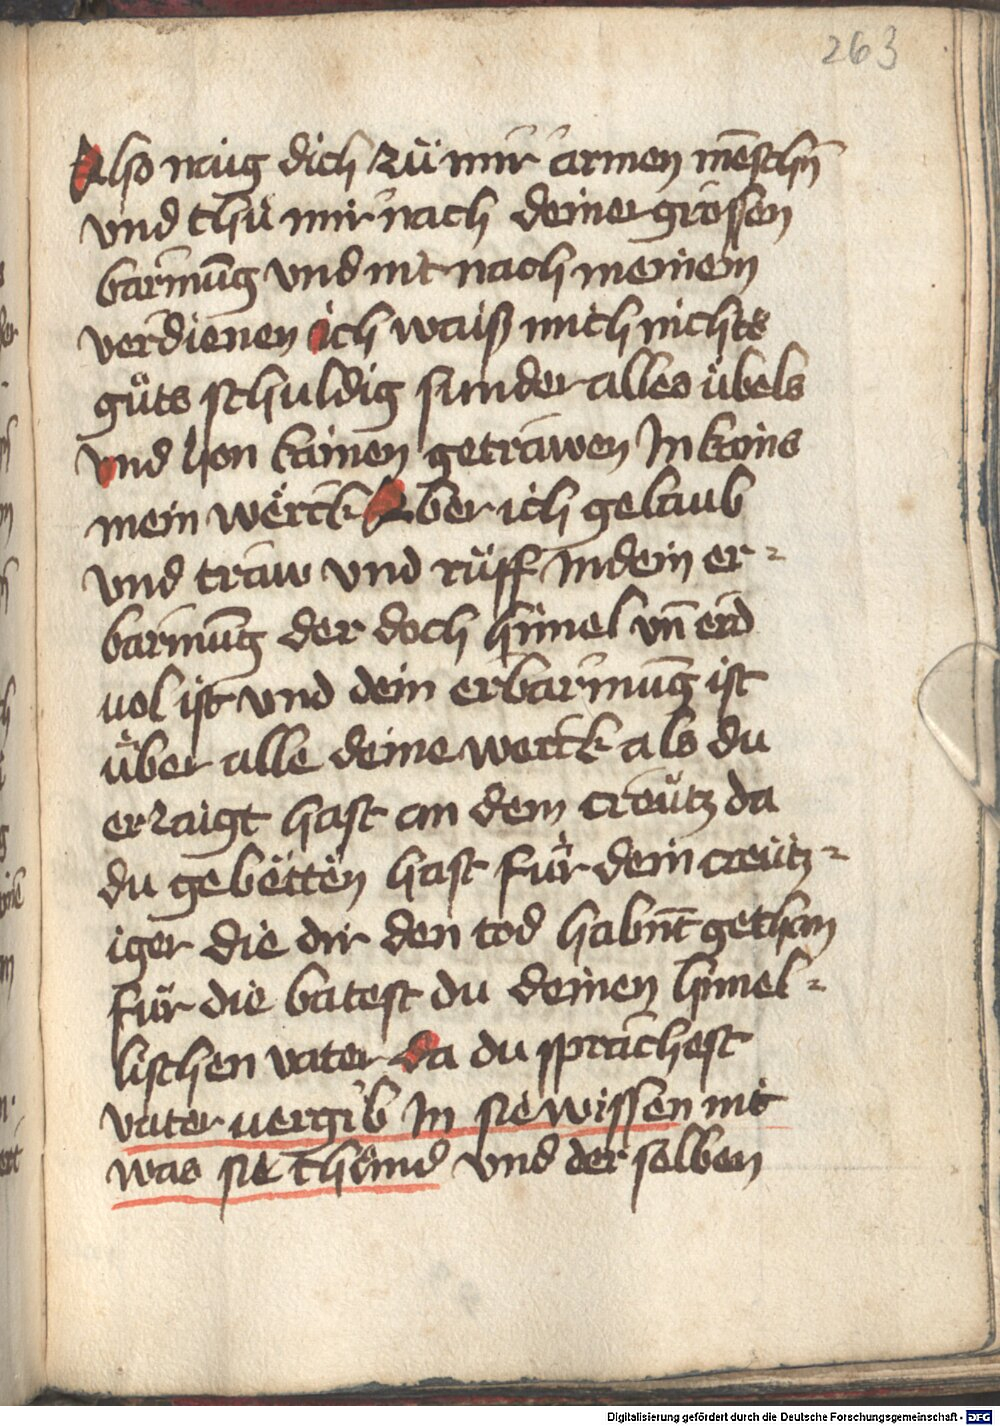 263
Also naig dich zů mir armen mẽschñ
vnd thů mir nach deiner grossen
barmũg vnd nit nach meinem
verdienen ich waiß mich nichts
gůts schuldig sunder alles übels
vnd hon kainen getrawen In kains
mein wërck Aber ich gelaub
vnd traw vnd rüff In dein er=
barmũg der doch himel vñ erd
uol ist vnd dein erbarmũg ist
über alle deine werck als du
erzaigt hast an dem creütz da
du gebëttën hast für dein creütz=
iger die dir den tod habnt gethan
für die batest du deinen himel=
lischen vater da du sprachest
vater uergib In sie wissen nit
was sie thönd vnd der selben
Digitalisierung gefördert durch die Deutsche Forschungsgemeinschaft - DFG